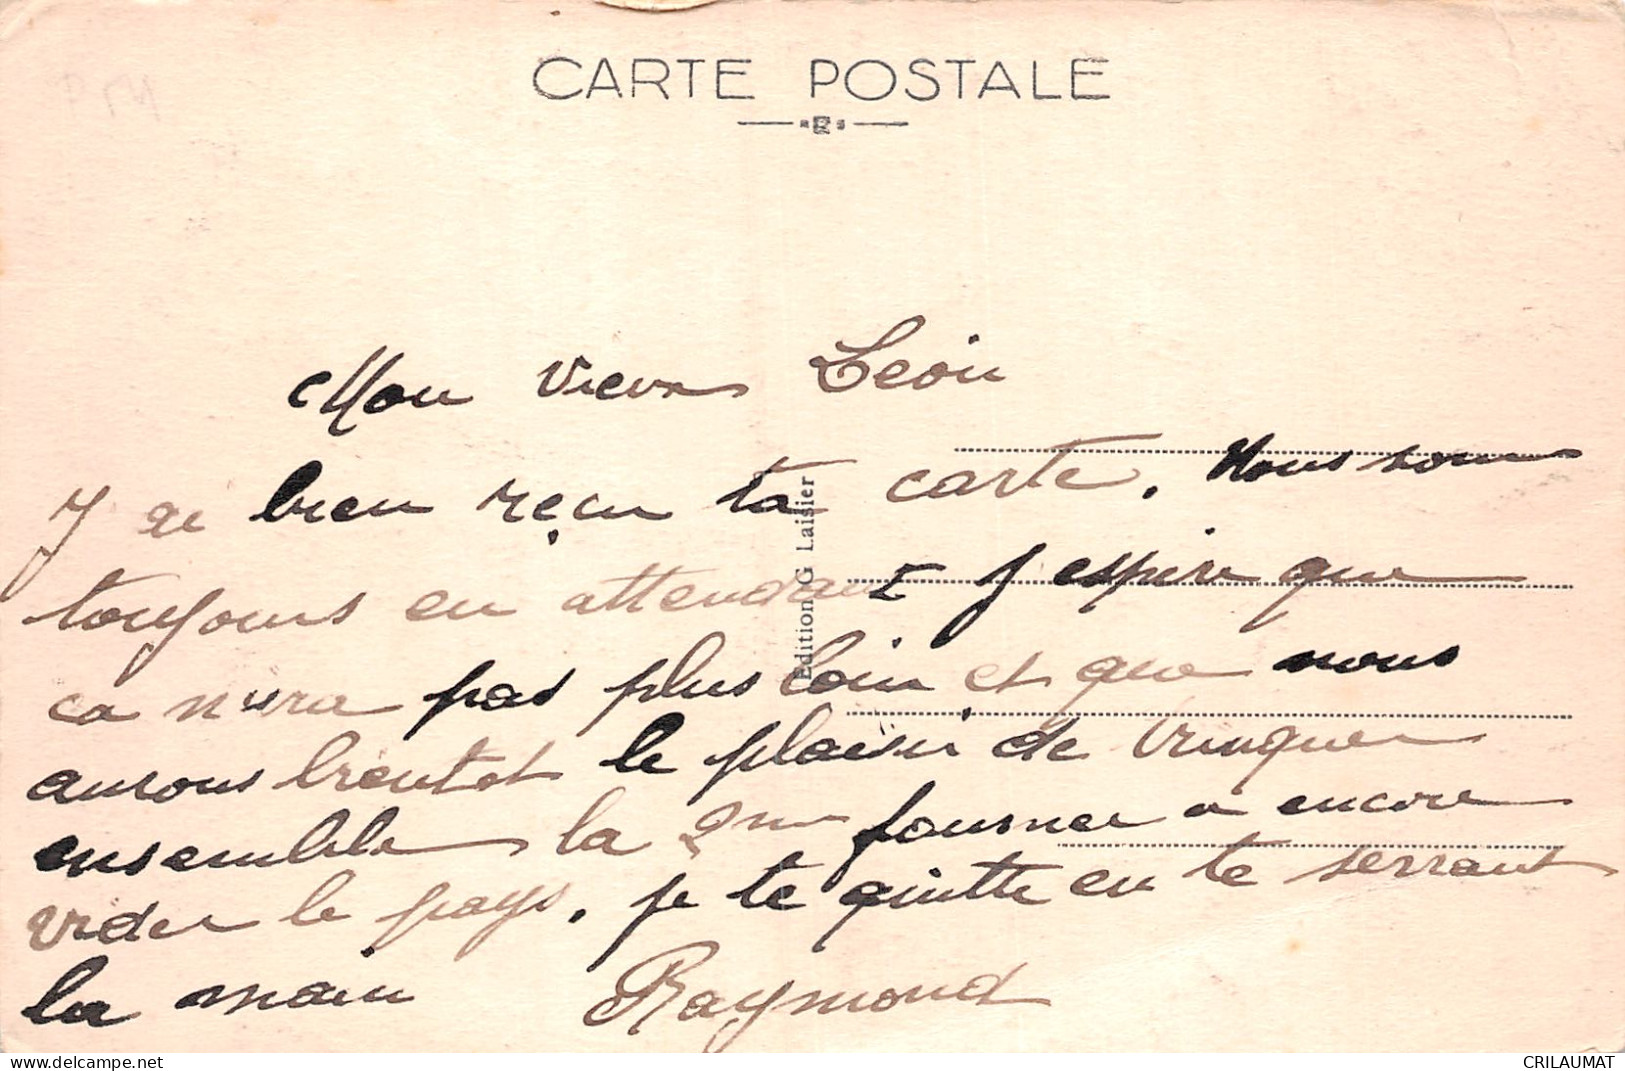 CARTE POSTALE
Mon vieux Leon
J ai bien reçu ta carte. Nous som
toujours en attendant J espire que
ca n'ira pas plus loin et que nous
aurons bientot le plaisir de trinquer
ensemble la 2me fournee a encore
vider le pays. je te quitte en te serrant
la main Raymond
Edition G Laisier
www.delcampe.net
CRILAUMAT